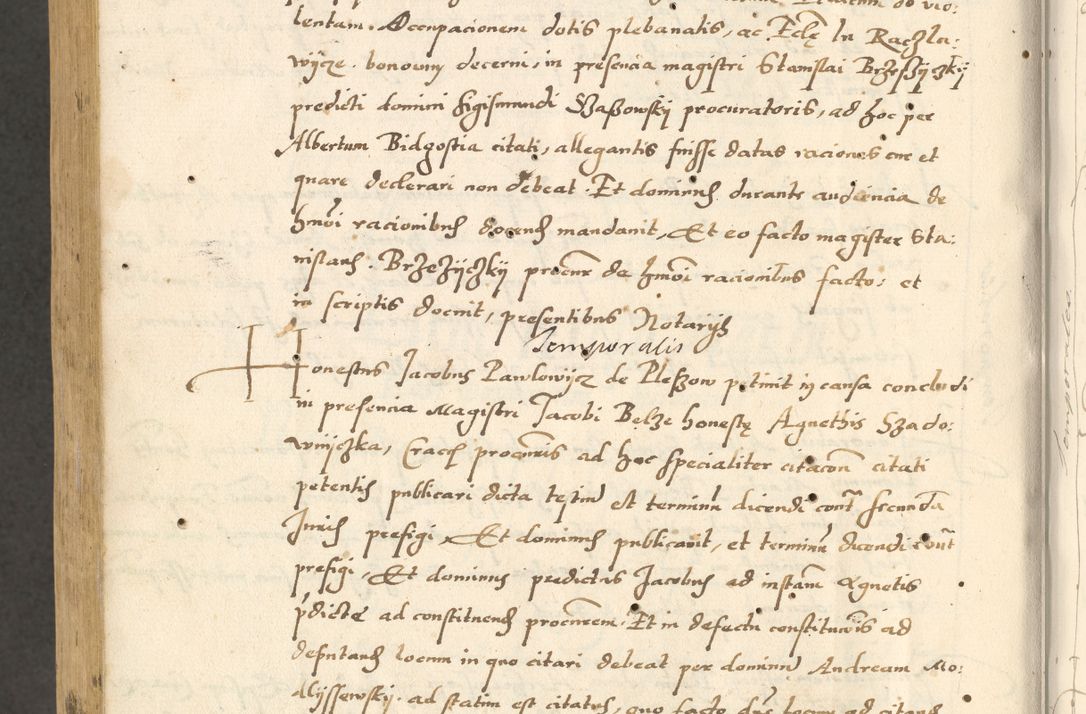 lentam. Occupacionem dotis plebanalis, ac Eclę In Raczla:
wycze. bonorum decerni, in presencia magistri Stanislai Brzezyczky
predicti domini Sigismundi Szaszowskij procuratoris, ad hoc per
Albertum Bidgostia citati, allegantis fuisse datas raciones cur et
quare declerari non debeat. Et dominus durante audiencia de
hmoi racionibus docendum mandauit, Et eo facto magister Sta:
nislaus. Brzezyczkij procur de hmoi racionibus facto: et
in scriptis docuit, presentibus Notarijs
Temporalis
Honestus Jacobus Pawlowicz de Pleszow petiuit in causa concludi
in presencia Magistri Jacobi Belze honestę Agnethis Szado:
wniczka, Cracę procuroris ad hoc specialiter citacon citati
petentis publicari dicta testium et terminum dicendi cont secunda
Juris prefigi, Et dominus publicauit, et terminum dicendi cont
prefigi, Et dominus predictus Jacobus ad instam Agnetis
pdicte ad constituend procurem. Et in defectu constitucois ad
deputand locum in quo citari debeat per dominum Andream Mo:
dlyssewskij. ad statim est citatus, quo facto dns locum ad citand